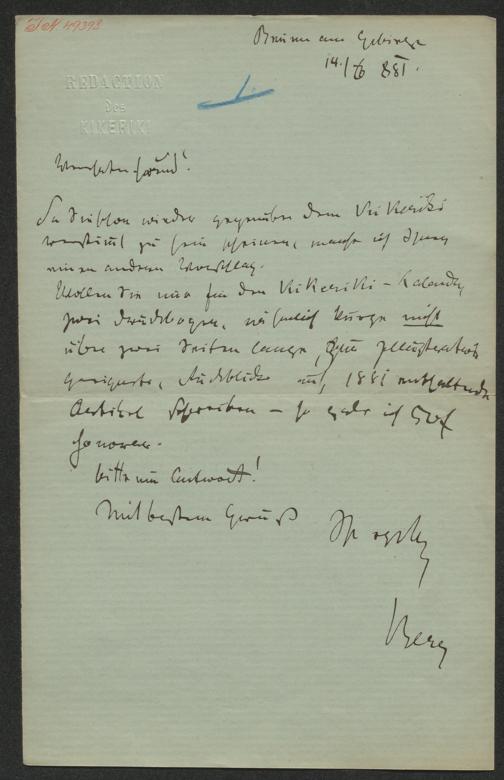 I.N. 49393
Brunn am Gebirge
14./6 881.
REDACTION
Des
KIKERIKI
Werthester Freund!
Da Sie schon wieder gegenüber dem Kikeriki
verstimmt zu sein scheinen, mache ich Ihnen
einen anderen Vorschlag.
Wollen Sie mir für den Kikeriki-Kalender
zwei Druckbogen, nämlich kurze nicht
über zwei Seiten lange, zur Illustration
geeignete, Ausblicke auf 1881 enthaltende
Artikel schreiben – so gebe ich 50 f
Honorar.
bitte um Antwort!
Mit bestem Gruß
Ihr
Berg